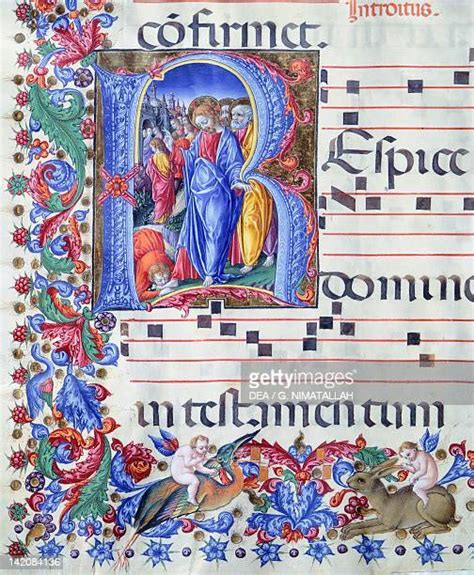 Introitus.
cōfirmet.
REspice
domine
in testamentum
gettyimages
DEA / G. NIMATALLAH
142084136